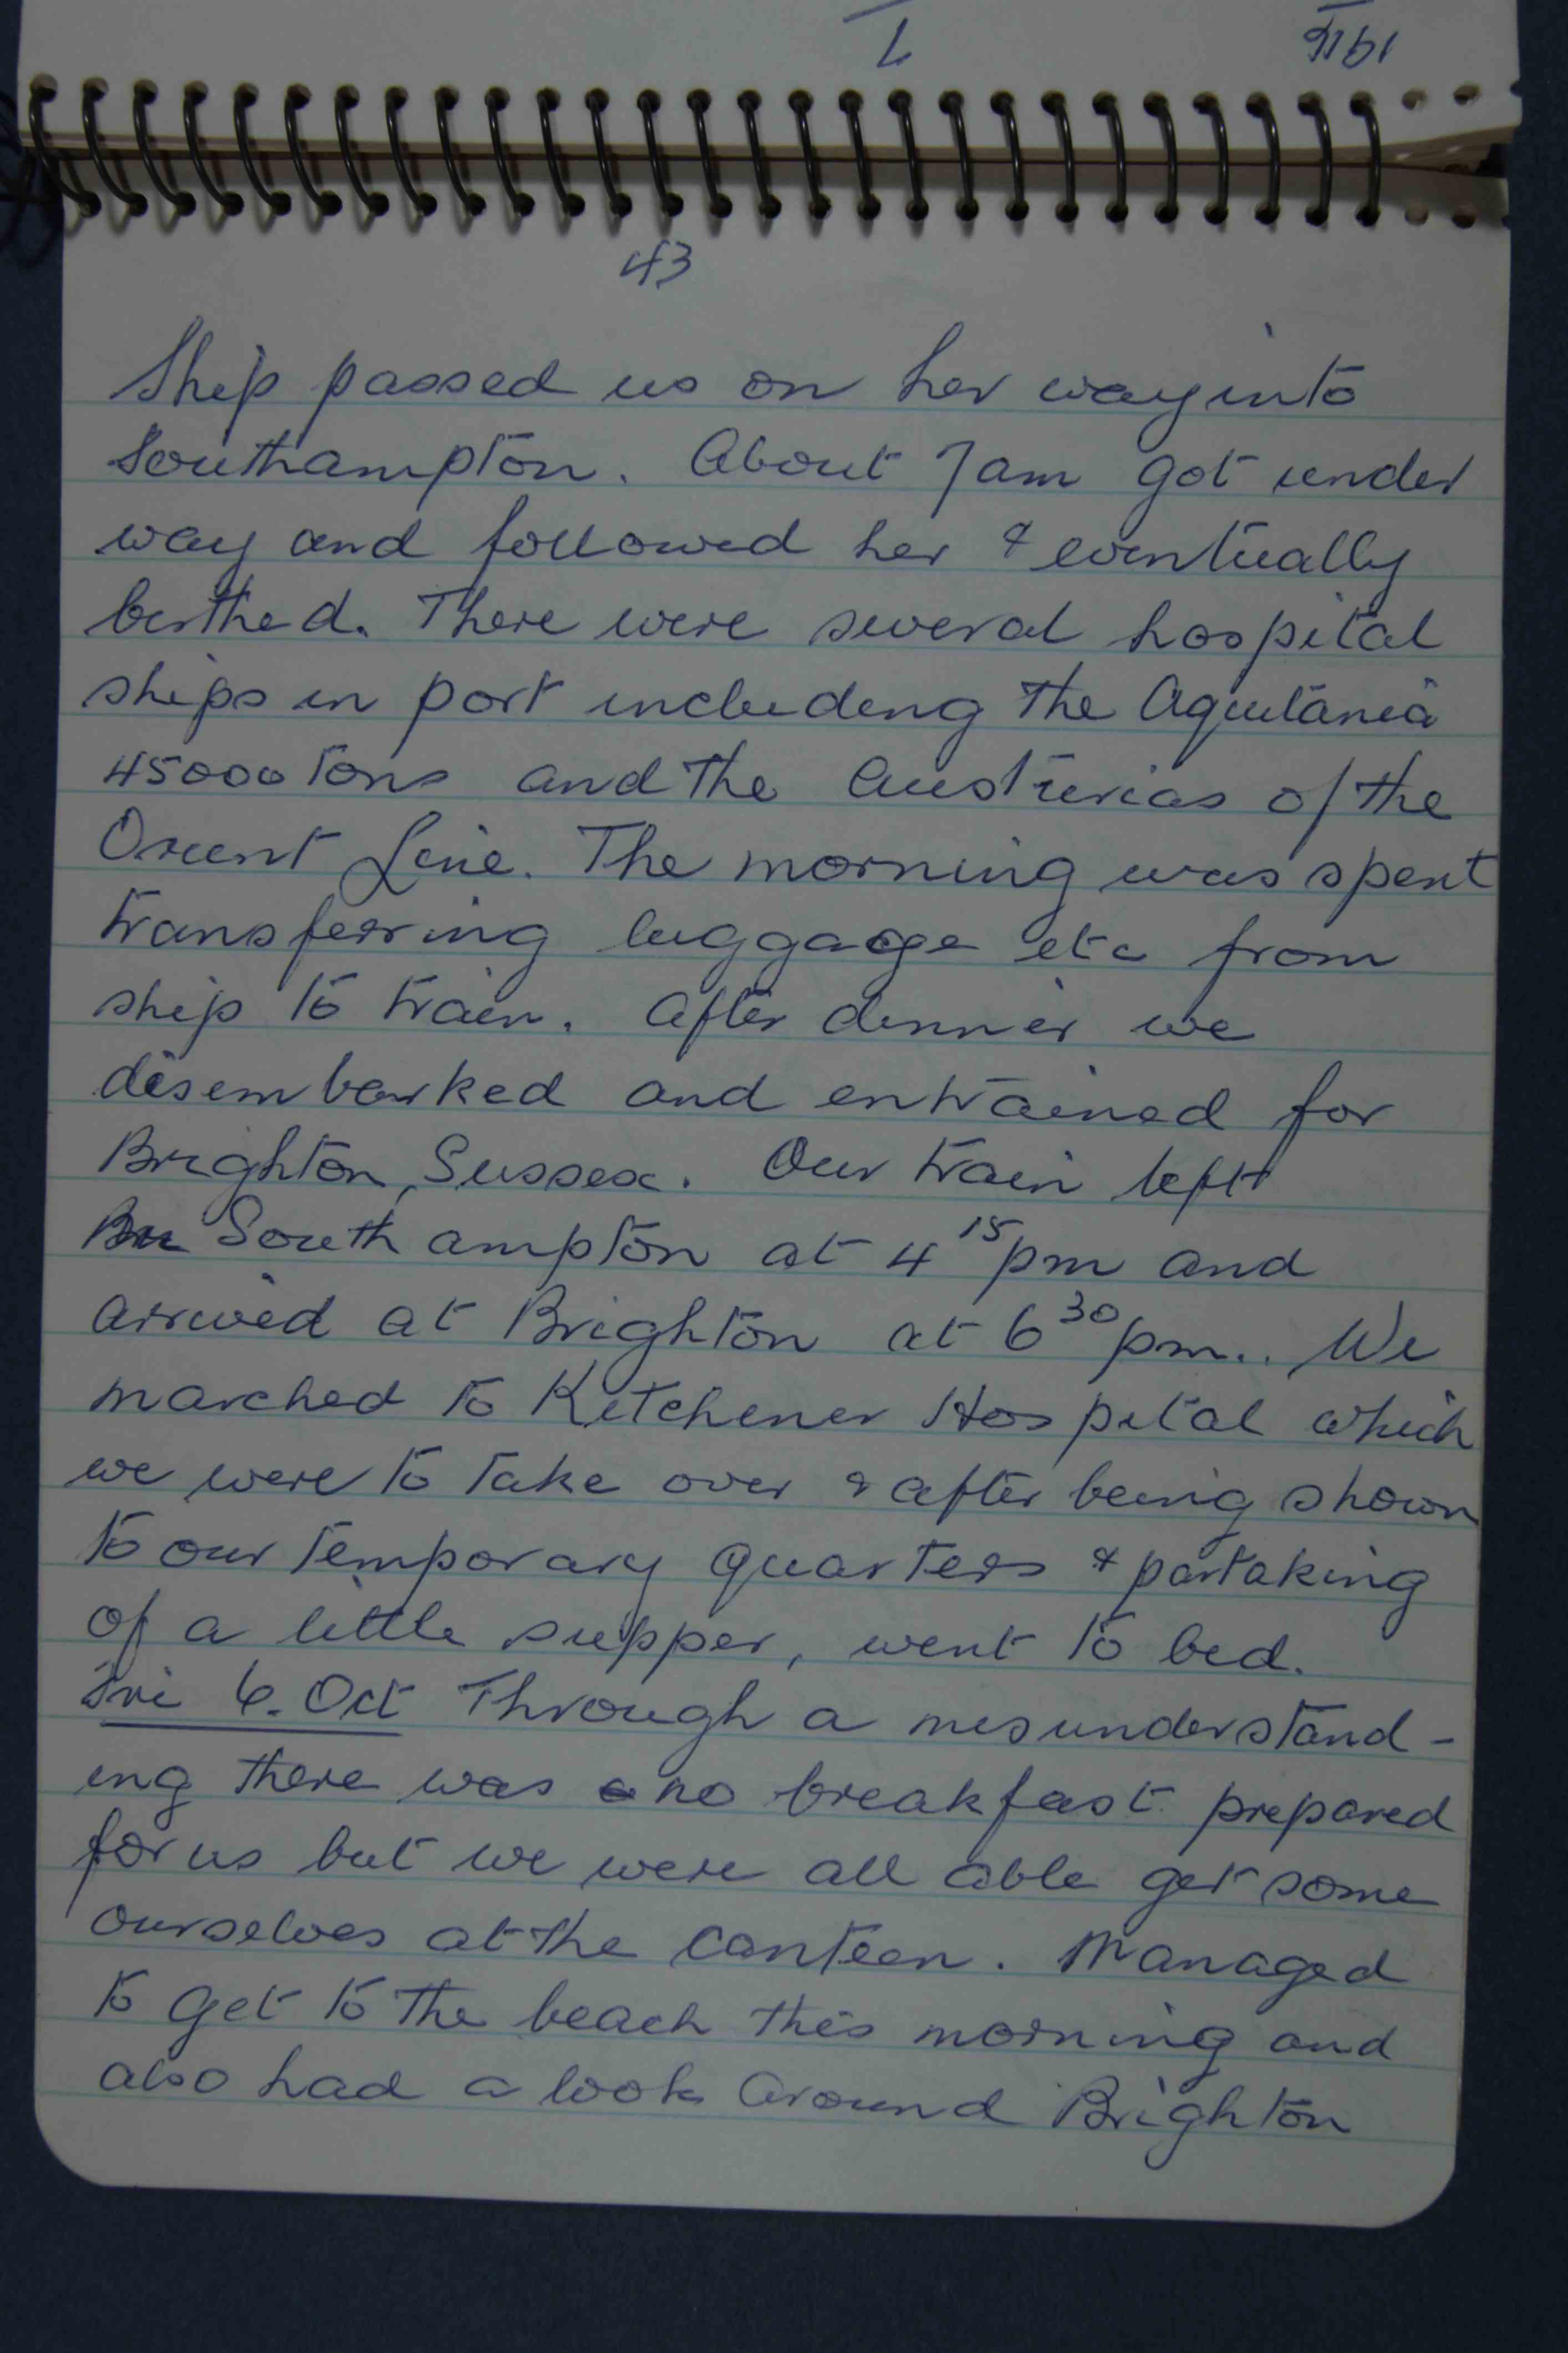 43
Ship passed us on her way into
Southampton. About 7am got under
way and followed her & eventually
berthed. There were several hospital
ships in port including the Aquitania
45000 tons and the Austurias of the
Orient Line. The morning was spent
transferring luggage etc from
ship to train. After dinner we
disembarked and entrained for
Brighton, Sussex. Our train left
Southampton at 4 15 pm and
arrived at Brighton at 6 30 pm.. We
marched to Kitchener Hospital which
we were to take over & after being shown
to our temporary quarters & partaking
of a little supper, went to bed.
Fri 6. Oct Through a misunderstand-
ing there was no breakfast prepared
for us but we were all able get some
ourselves at the canteen. Managed
to get to the beach this morning and
also had a look around Brighton